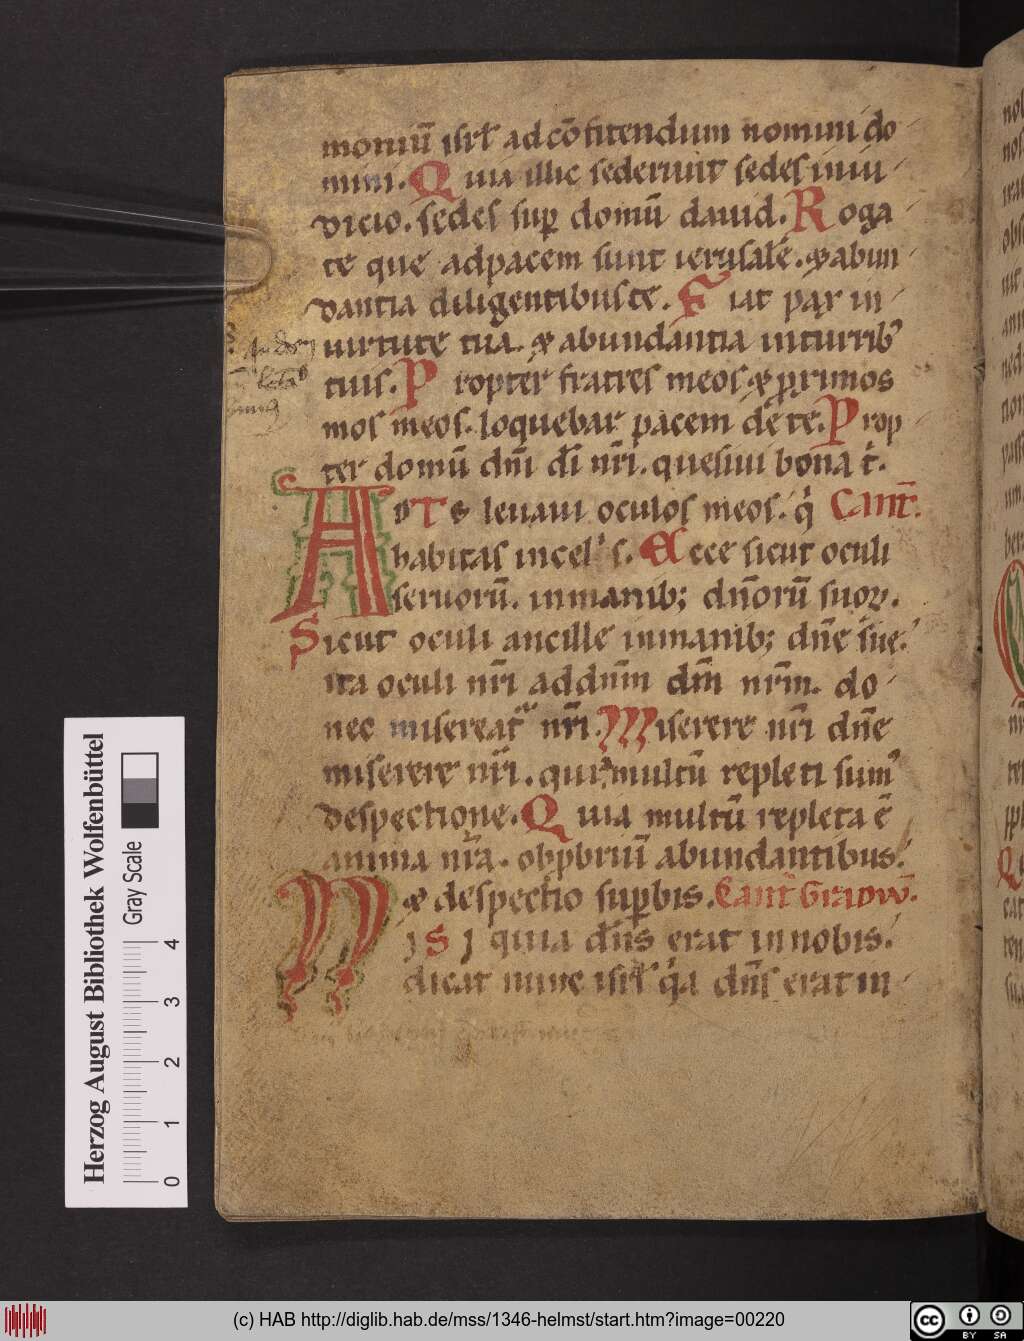 moniū isrł ad cōfitendum nomini do
mini. Quia illic sederunt sedes iniu
dicio. sedes sup domū dauid. Roga
te que adpacem sunt ierusalē. & abun
dantia diligentibus te. Fiat pax in
uirtute tua. & abundantia inturrib᾽
tuis. Propter fratres meos. & primos
mos meos. loquebar pacem de te. Prop
ter domū dni di nri. quesiui bona t.
AD TE leuaui oculos meos. q Cant.
habitas incelis. Ecce sicut oculi
seruorū. inmanib; dñorū suoꝝ.
Sicut oculi ancille inmanib; dñe sue.
ita oculi nri addnm dm nrm. do
nec misereatᷣ nri. Miserere nri dñe
miserere nri. quia multū repleti sum᾽
despectione. Quia multū repleta ē
anima nra. obpbriū abundantibus.
& despectio supbis. Cant Graduū.
NISI quia dns erat innobis.
dicat nunc isrł qa dns erat in
Herzog August Bibliothek Wolfenbüttel
Gray Scale
0 1 2 3 4
(c) HAB http://diglib.hab.de/mss/1346-helmst/start.htm?image=00220
cc BY SA